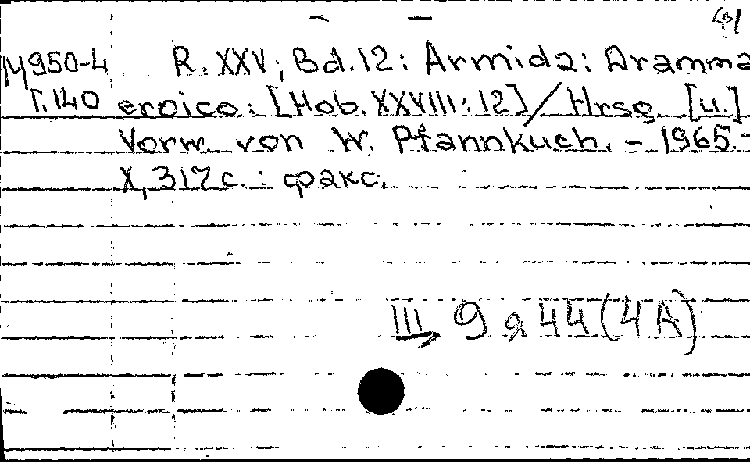 M950-4 R. XXV, Bd. 12: Armida: Dramma
T.140 eroico: [Hob. XXVIII:12] / Hrsg. [u.]
Vorw. von W. Pfannkuch. – 1965. –
X, 317 c. : факс.
III 9 я 44 (4A)